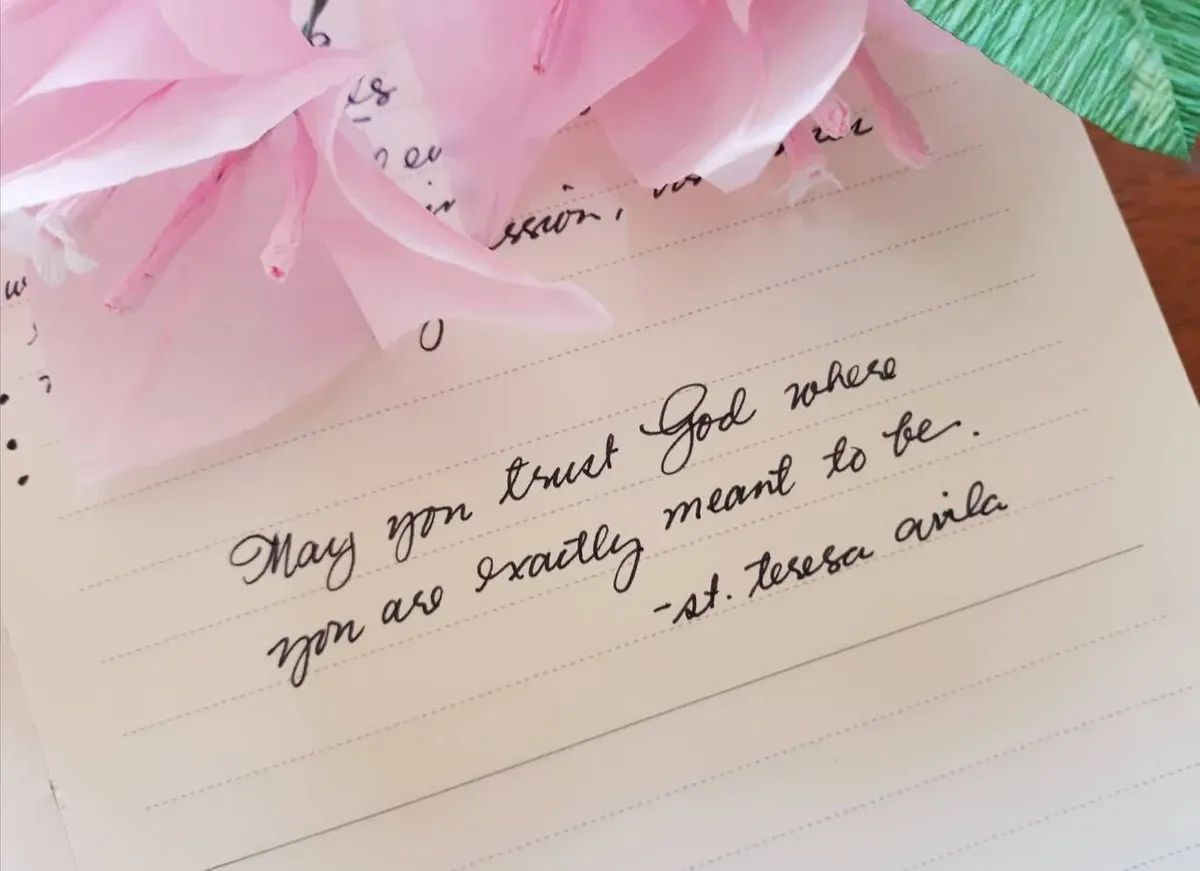 May you trust God where
you are exactly meant to be.
-st. teresa avila